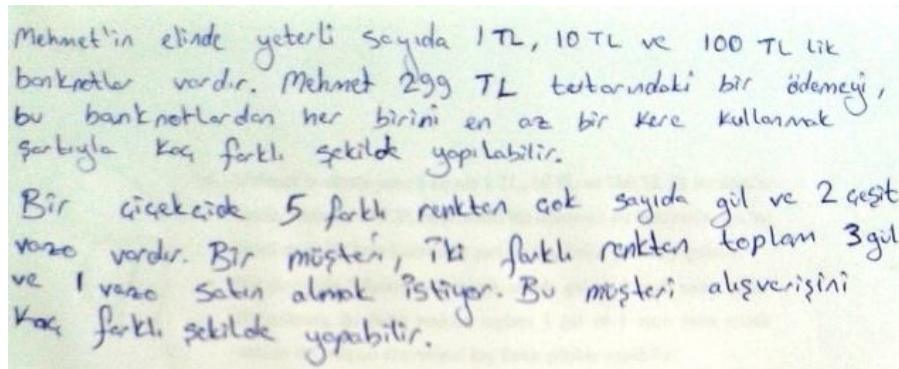 Mehmet'in elinde yeterli sayıda 1 TL, 10 TL ve 100 TL lik
banknotlar vardır. Mehmet 299 TL tutarındaki bir ödemeyi,
bu banknotlardan her birini en az bir kere kullanmak
şartıyla kaç farklı şekilde yapılabilir.
Bir çiçekçide 5 farklı renkten çok sayıda gül ve 2 çeşit
vazo vardır. Bir müşteri, iki farklı renkten toplam 3 gül
ve 1 vazo satın almak istiyor. Bu müşteri alışverişini
kaç farklı şekilde yapabilir.